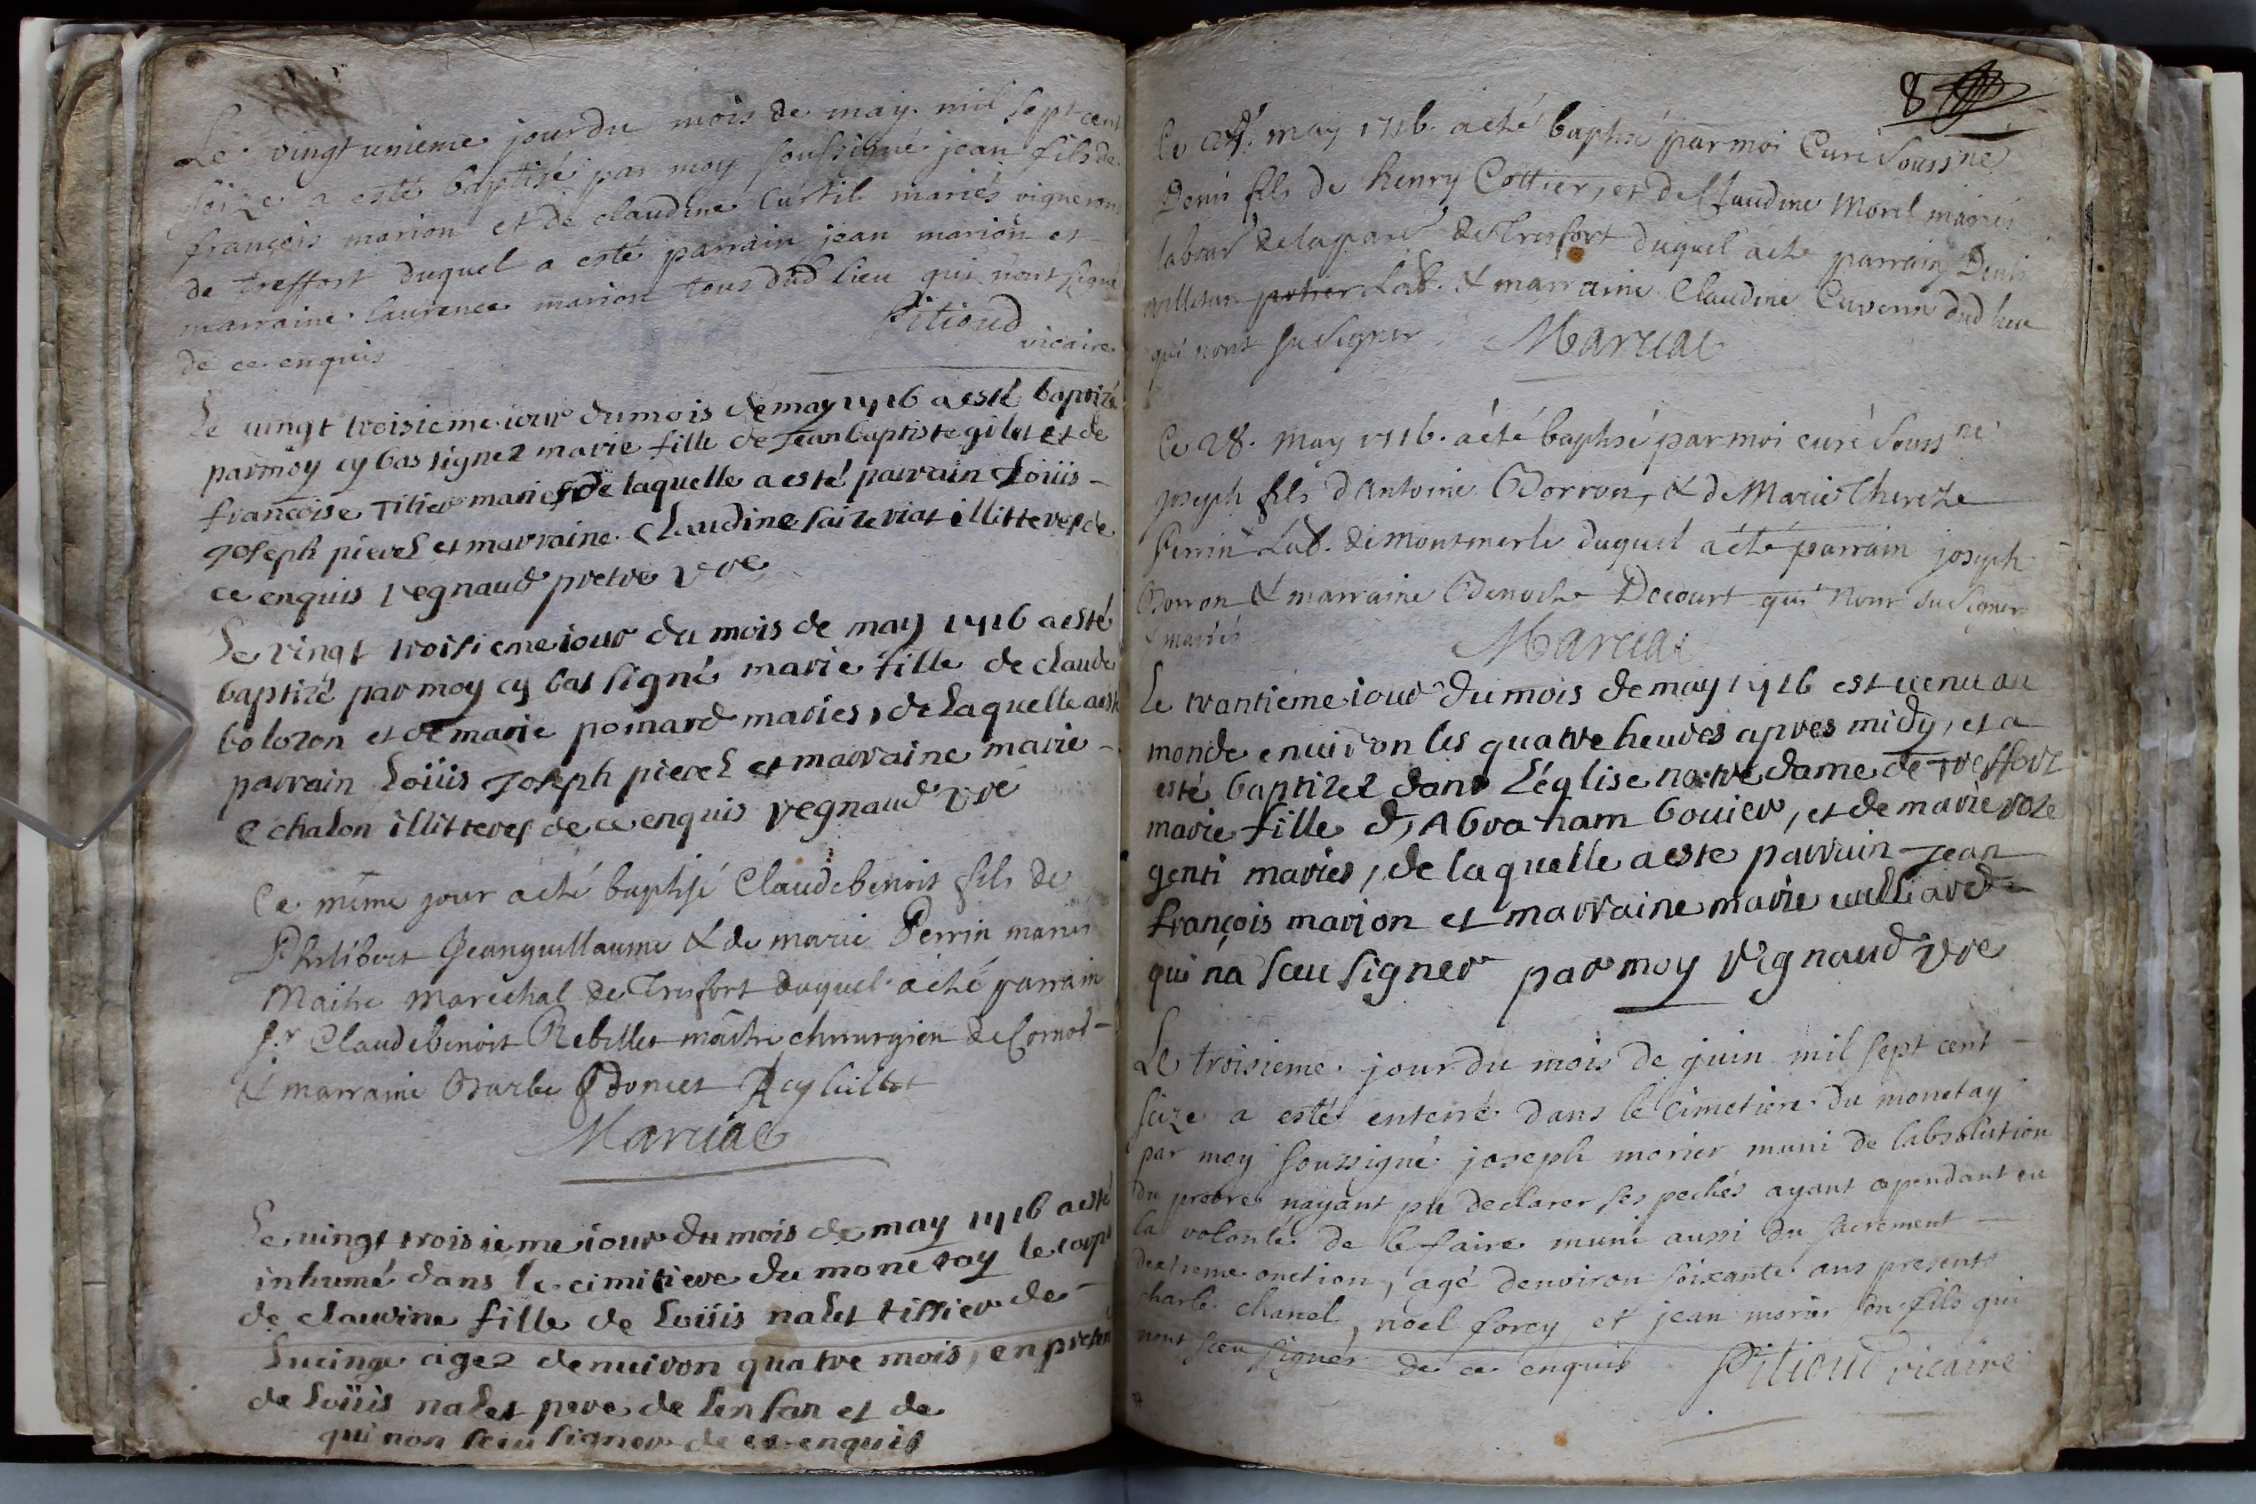 Le vingt unieme jour du mois de may mil sept cent
seize a esté baptisé par moy soussigné jean fils de
françois marion et de claudine Curtil mariés vignerons
de treffort duquel a esté parrain jean marion et
marraine laurence marion tous dud lieu qui n'ont signé
de ce enquis
Pitioud
vicaire
Le vingt troisieme iour du mois de may 1716 a esté baptizé
par moy cy bas signez marie fille de Jean baptiste gilet et de
françoise Titier mariés de laquelle a esté parrain Loüis
Joseph pierel et marraine Claudine saizeriat illitteres de
ce enquis regnaud pretre vre
Le vingt troisieme iour du mois de may 1716 a esté
baptizé par moy cy bas signé marie fille de claude
bolozon et de marie pomard maries, de laquelle a esté
parrain Loüis Joseph pierel et marraine marie
echalon illitteres de ce enquis regnaud vre
Ce même jour a été baptisé Claude benoit fils de
Philibert Jeanguillaume & de marie Perrin mariés
Maitre marechal de Tresfort duquel a été parrain
Sr Claude benoit Rebillet maître chirurgien de Cornod
& marraine Barbe Poncet
Marcial
Le vingt troisieme iour du mois de may 1716 a esté
inhumé dans le cimitiere du monetay le corps
de claudine fille de Loüis nalet tissier de
Lucinge agez de nuiron quatre mois, en presen
de Loüis nalet pere de lenfan et de
qui non sceu signer de ce enquis
8
Ce may 1716. a été baptisé par moi Curé souss né
Denis fils de henry Cottier, et de Claudine Morel mariés
labour de la par de Tresfort duquel a été parrain Denis
Lab. & marraine Claudine dud lieu
qui n'ont su signer Marcial
Ce 28. may 1716. a été baptisé par moi curé souss né
joseph fils d'Antoine Borron, & de Marie Thereze
Perrin Lab. de montmerle duquel a été parrain joseph
Borron & marraine Benoite Decourt qui n'ont su signer
& mariés
Marcial
Le trantieme iour du mois de may 1716 est uenu au
monde enuiron les quatre heures apres midy, et a
esté baptizez dans L'église notre dame de treffort
marie fille d, Abraham bouier, et de marie roze
genti maries, de laquelle a este parrain Jean
françois marion et marraine marie uulliard
qui na sceu signer par moy regnaud vre
Le troisieme jour du mois de juin mil sept cent
seize a esté enterré dans le cimetiere du monetay
par moy soussigné joseph morier muni de labsolution
du prebre nayant pu declarer ses pechés ayant cependant eu
la volonté de le faire muni aussi du sacrement
dextreme onction, agé denviron soixante ans presents
charle chanel, noel forey et jean morier son fils qui
n'ont sceu signer de ce enquis Pitioud vicaire